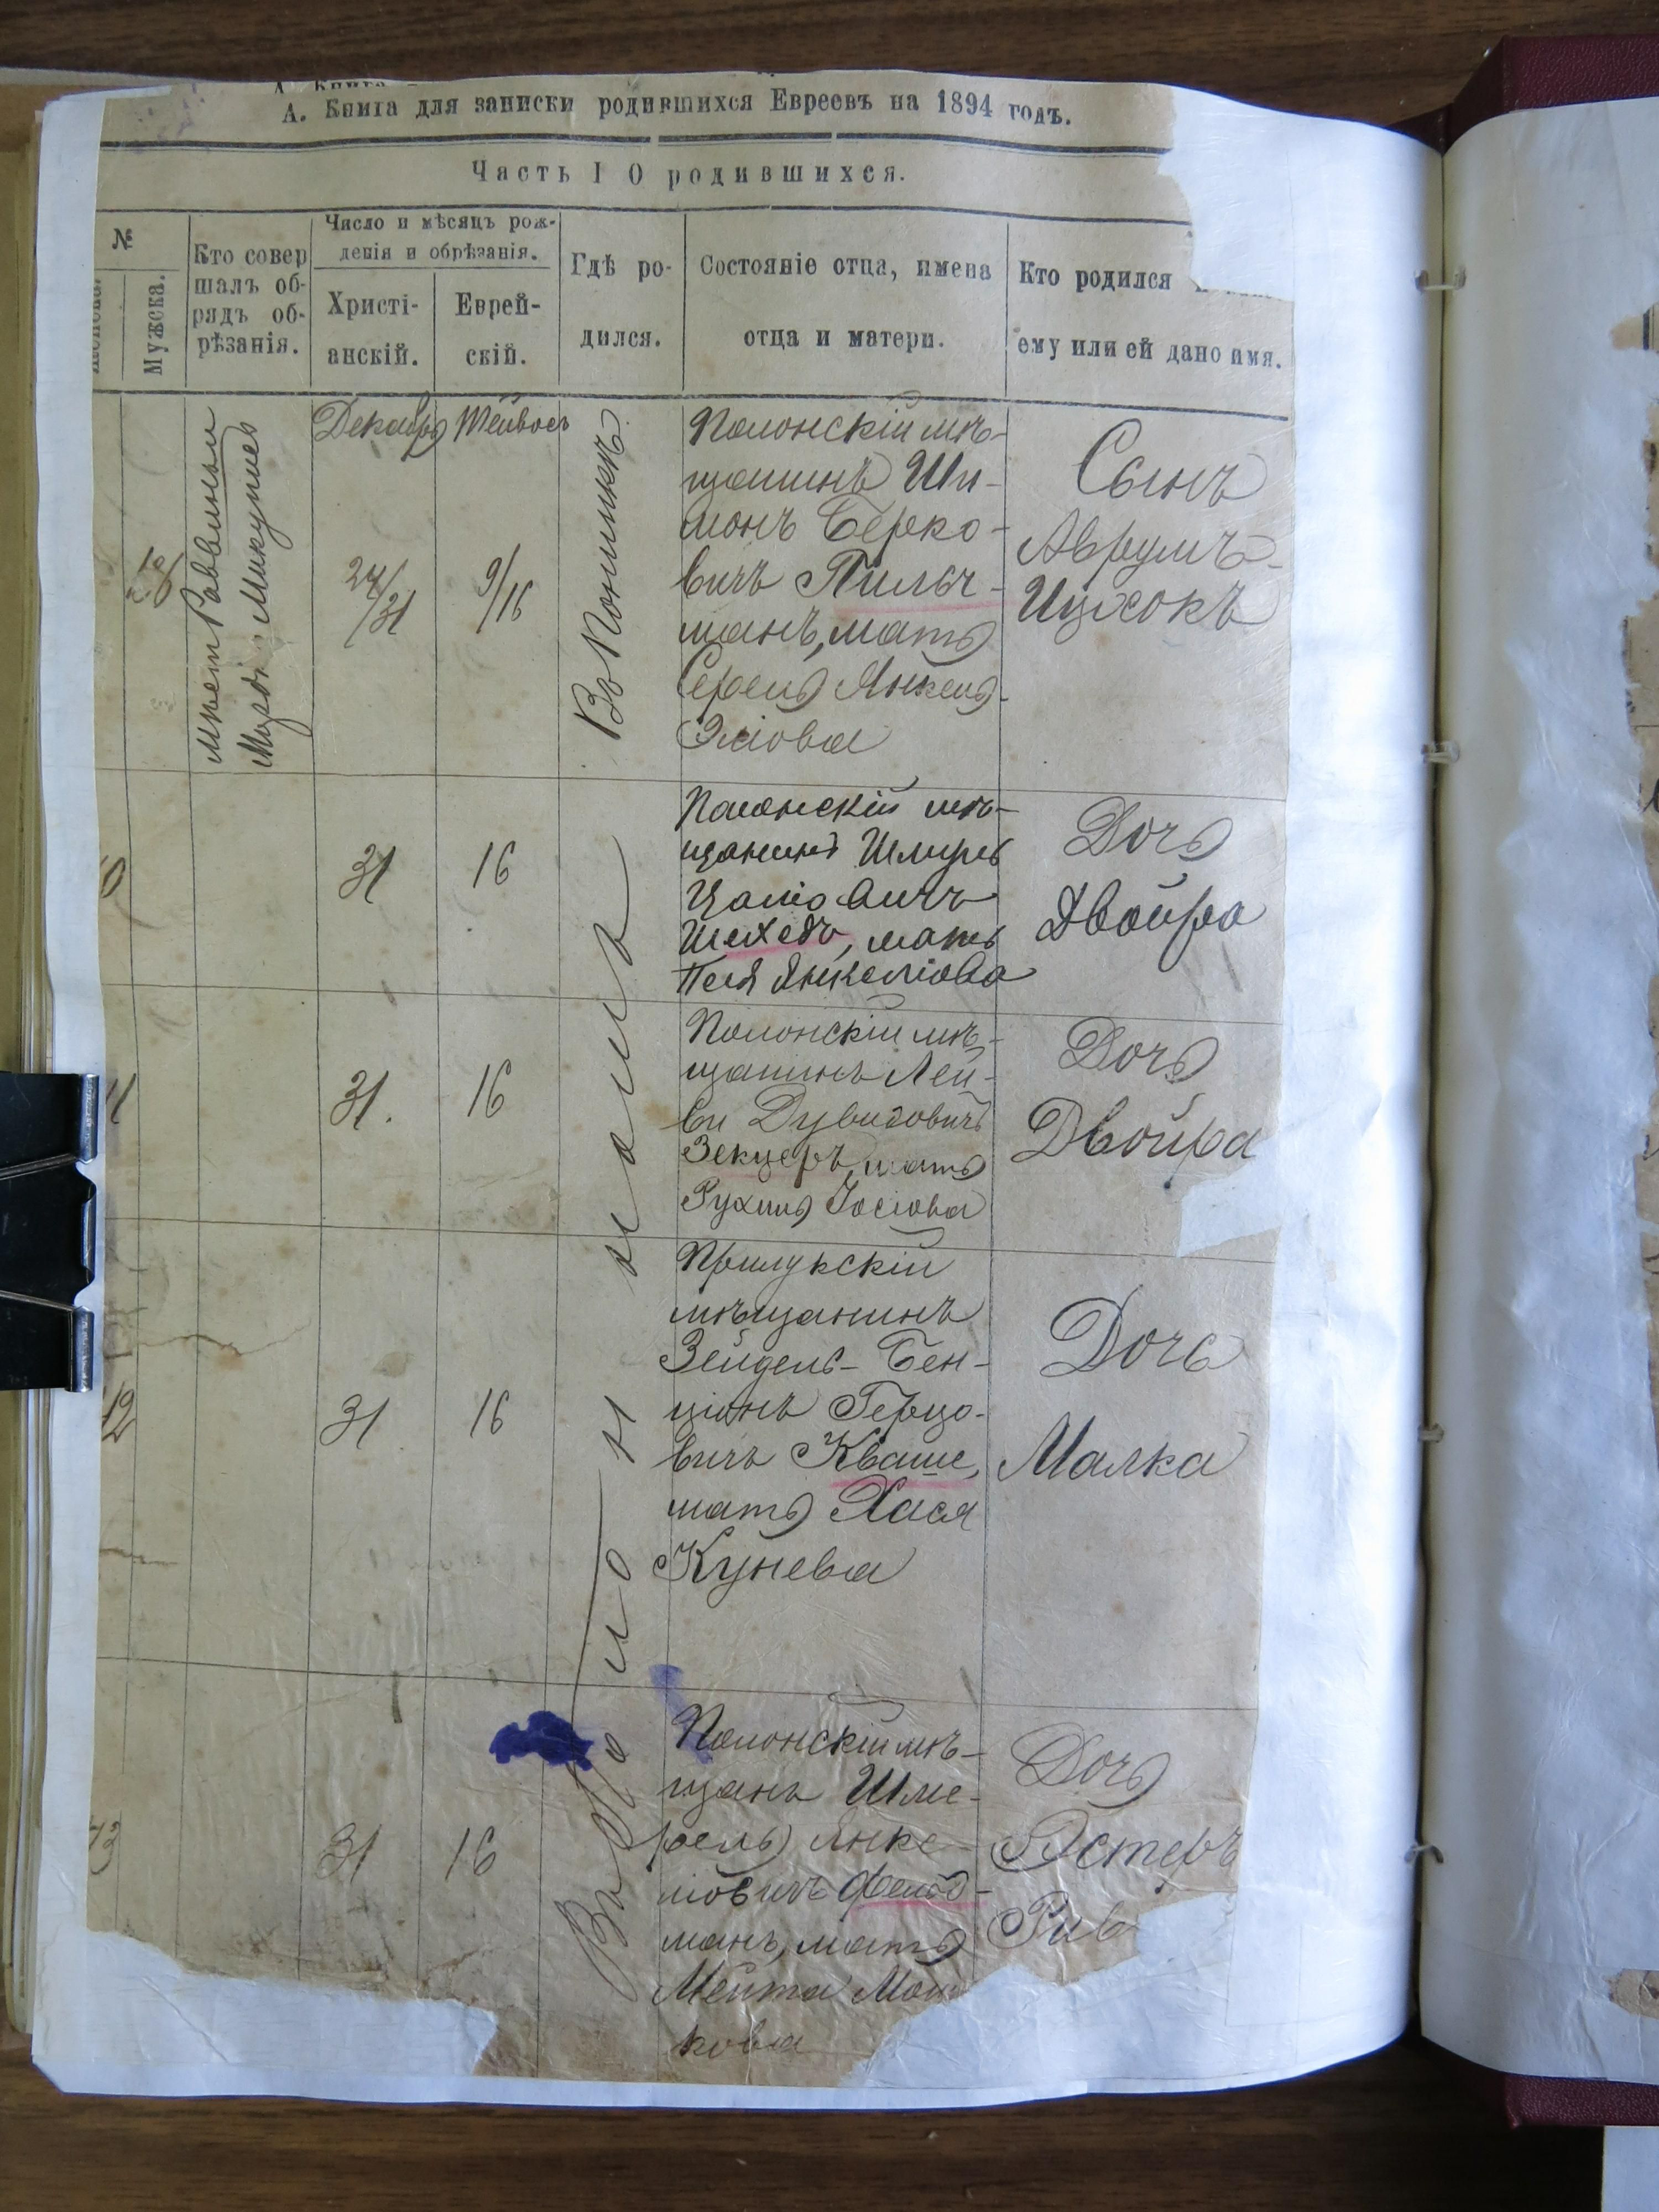 А. Книга для записки родившихся Евреевъ на 1894 годъ.
Часть I О родившихся.
№
Мужска.
Кто совер
шалъ об-
рядъ об-
рѣзанія.
Число и мѣсяцъ рож-
денія и обрѣзанія.
Христі-
анскій.
Еврей-
скій.
Гдѣ ро-
дился.
Состояніе отца, имена
отца и матери.
Кто родился
ему или ей дано имя.
Раввинъ
Микулинъ
Декабрь
24/31
Тейвесъ
9/16
Въ Полонномъ
Полонскій мѣ-
щанинъ Ши-
монъ Берко-
вичъ Пильч-
манъ, мать
Сербля Янкель-
Эліова
Сынъ
Аврумъ-
Ицхокъ
31
16
Полонскій мѣ-
щанинъ Шмуль
Цаліовичъ
Шехедъ, мать
Песя Янкеліова
Дочь
Двойра
31.
16
Полонскій мѣ-
щанинъ Лей-
ви Дувидовичъ
Зекцеръ, мать
Рухля Іосіова
Дочь
Двойра
12
31
16
Прилукскій
мѣщанинъ
Зейдель-Бен-
ціонъ Герцо-
вичъ Кваше,
мать Хася
Кунева
Дочь
Малка
31
16
Полонскій мѣ-
щанъ Шме-
рель Янке-
ліовичъ Фельд-
манъ, мать
Мейта Мош
кова
Дочь
Эстеръ
Рив